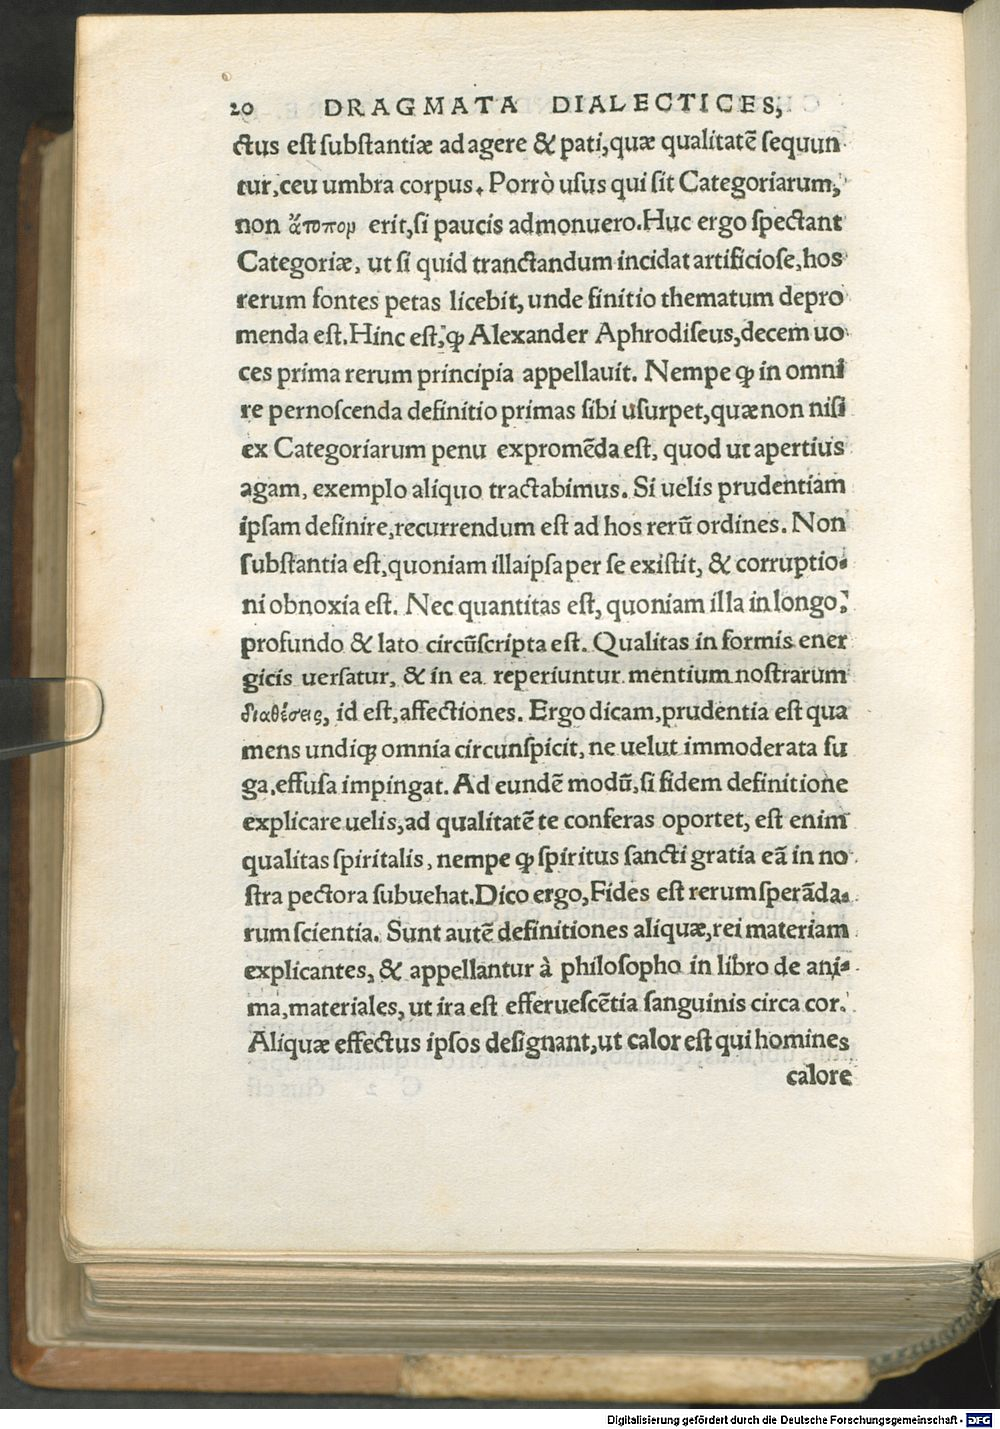 20 DRAGMATA DIALECTICES,
ctus est substantiæ ad agere & pati, quæ qualitatẽ sequun
tur, ceu umbra corpus. Porrò usus qui sit Categoriarum,
non ἄτοπον erit, si paucis admonuero. Huc ergo spectant
Categoriæ, ut si quid tranctandum incidat artificiose, hos
rerum fontes petas licebit, unde finitio thematum depro
menda est. Hinc est, ꝙ Alexander Aphrodiseus, decem uo
ces prima rerum principia appellauit. Nempe ꝙ in omni
re pernoscenda definitio primas sibi usurpet, quæ non nisi
ex Categoriarum penu expromẽda est, quod ut apertius
agam, exemplo aliquo tractabimus. Si uelis prudentiam
ipsam definire, recurrendum est ad hos rerũ ordines. Non
substantia est, quoniam illa ipsa per se existit, & corruptio-
ni obnoxia est. Nec quantitas est, quoniam illa in longo,
profundo & lato circũscripta est. Qualitas in formis ener
gicis uersatur, & in ea reperiuntur mentium nostrarum
διαθέσεις, id est, affectiones. Ergo dicam, prudentia est qua
mens undiqꝫ omnia circunspicit, ne uelut immoderata fu
ga, effusa impingat. Ad eundẽ modũ, si fidem definitione
explicare uelis, ad qualitatẽ te conferas oportet, est enim
qualitas spiritalis, nempe ꝙ spiritus sancti gratia eã in no
stra pectora subuehat. Dico ergo, Fides est rerum sperãda-
rum scientia. Sunt autẽ definitiones aliquæ, rei materiam
explicantes, & appellantur à philosopho in libro de ani-
ma, materiales, ut ira est efferuescẽtia sanguinis circa cor.
Aliquæ effectus ipsos designant, ut calor est qui homines
calore
Digitalisierung gefördert durch die Deutsche Forschungsgemeinschaft - DFG